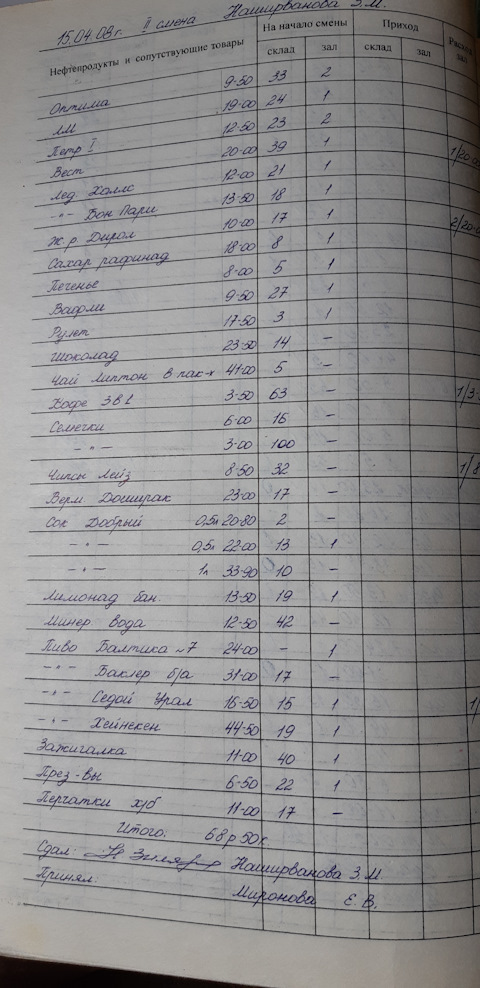 15.04.08г. II смена Наширванова З.М.
Нефтепродукты и сопутствующие товары На начало смены Приход Расход
склад зал склад зал зал
Оптима 9-50 33 2
ЛМ 19-00 24 1
Петр I 12-50 23 2
Вест 20-00 39 1 1/20-00
Лед. Холлс 12-00 21 1
-"- Бон Пари 13-50 18 1
Ж.р. Дирол 10-00 17 1 2/20-0
Сахар рафинад 18-00 8 1
Печенье 8-00 5 1
Вафли 9-50 27 1
Рулет 17-50 3 1
Шоколад 23-50 14 –
Чай Липтон в пак-х 41-00 5 –
Кофе 3в1 3-50 63 – 1/3-
Семечки 6-00 16 –
-"- 3-00 100 –
Чипсы Лейз 8-50 32 – 1/8
Верм Доширак 23-00 17 –
Сок Добрый 0,5л 20-80 2 –
-"- 0,5л 22-00 13 1
-"- 1л 33-90 10 –
Лимонад бан. 13-50 19 1
Минер вода 12-50 42 –
Пиво Балтика №7 24-00 – 1
-"- Баклер б/а 31-00 17 –
-"- Седой Урал 16-50 15 1 1/
-"- Хейнекен 44-50 19 1
Зажигалка 11-00 40 1
През-вы 6-50 22 1
Перчатки х/б 11-00 17 –
Итого: 68р 50к
Сдал: Наширванова З.М.
Принял: Миронова Е.В.